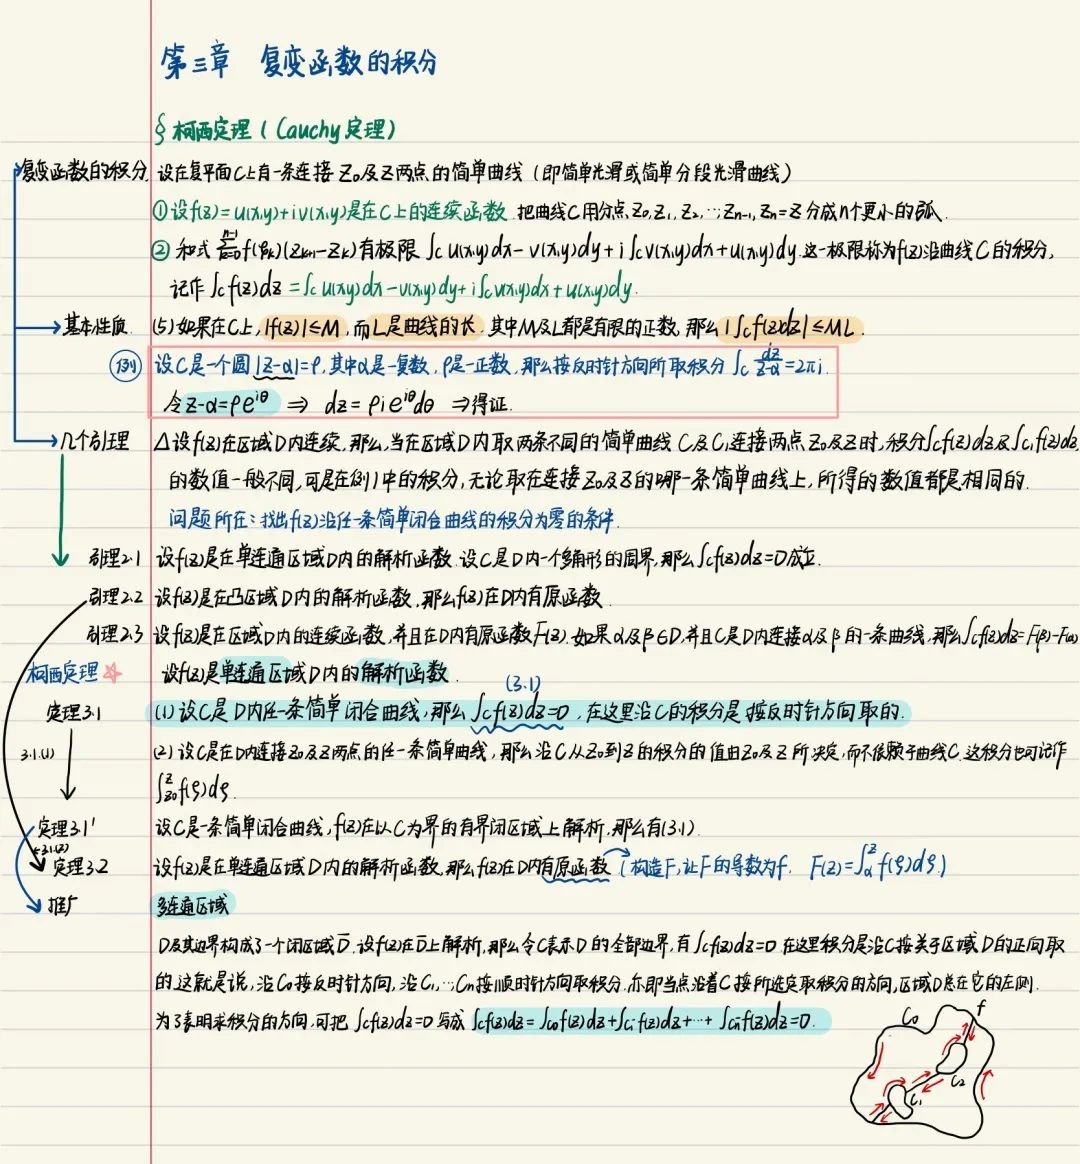 第三章 复变函数的积分
§ 柯西定理(Cauchy定理)
复变函数的积分 设在复平面C上有一条连接 Z₀及Z两点的简单曲线(即简单光滑或简单分段光滑曲线)
①设f(z)=u(x,y)+iv(x,y)是在C上的连续函数.把曲线C用分点,Z₀,Z₁,Z₂,…,Zn-1,Zn=Z分成n个更小的弧.
② 和式 Σ(k=0→n-1) f(ζk)(Zk+1-Zk)有极限 ∫c u(x,y)dx-v(x,y)dy+i∫c v(x,y)dx+u(x,y)dy.这一极限称为f(z)沿曲线C的积分,
记作∫c f(z)dz=∫c u(x,y)dx-v(x,y)dy+i∫c v(x,y)dx+u(x,y)dy.
基本性质 (5)如果在C上,|f(z)|≤M,而L是曲线的长.其中M及L都是有限的正数,那么|∫c f(z)dz|≤ML.
例 设C是一个圆|z-α|=ρ,其中α是一复数,ρ是一正数,那么按反时针方向所取积分 ∫c dz/(z-α)=2πi.
令z-α=ρe^iθ ⇒ dz=ρie^iθdθ ⇒得证.
几个引理 △设f(z)在区域D内连续,那么,当在区域D内取两条不同的简单曲线C及C₁连接两点Z₀及Z时,积分∫c f(z)dz及∫c₁ f(z)dz
的数值一般不同,可是在例1中的积分,无论取在连接Z₀及Z的哪一条简单曲线上,所得的数值都是相同的.
问题所在:找出f(z)沿任一条简单闭合曲线的积分为零的条件.
引理2.1 设f(z)是在单连通区域D内的解析函数.设C是D内一个多角形的周界,那么∫c f(z)dz=0成立.
引理2.2 设f(z)是在凸区域D内的解析函数,那么f(z)在D内有原函数.
引理2.3 设f(z)是在区域D内的连续函数,并且在D内有原函数F(z).如果α及β∈D,并且C是D内连接α及β的一条曲线,那么∫c f(z)dz=F(β)-F(α)
柯西定理☆ 设f(z)是单连通区域D内的解析函数.
(3.1)
定理3.1 (1)设C是D内任一条简单闭合曲线,那么∫c f(z)dz=0,在这里沿C的积分是按反时针方向取的.
3.1.(1) (2)设C是在D内连接Z₀及Z两点的任一条简单曲线,那么沿C从Z₀到Z的积分的值由Z₀及Z所决定,而不依赖于曲线C.这积分也可记作
∫z₀^z f(ζ)dζ.
定理3.1' 设C是一条简单闭合曲线,f(z)在以C为界的有界闭区域上解析,那么有(3.1).
+3.1(2)
定理3.2 设f(z)是在单连通区域D内的解析函数,那么f(z)在D内有原函数(构造F,让F的导数为f. F(z)=∫α^z f(ζ)dζ.)
推广 多连通区域
D及其边界构成了一个闭区域D̄.设f(z)在D̄上解析,那么令C表示D的全部边界,有∫c f(z)dz=0.在这里积分是沿C按关于区域D的正向取
的.这就是说,沿C₀按反时针方向,沿C₁,…,Cn按顺时针方向取积分.亦即当点沿着C按所选定取积分的方向,区域D总在它的左侧.
为了表明求积分的方向,可把∫c f(z)dz=0写成∫c f(z)dz=∫c₀ f(z)dz+∫c₁⁻ f(z)dz+…+∫cn⁻ f(z)dz=0.
C₀
f
C₂
C₁